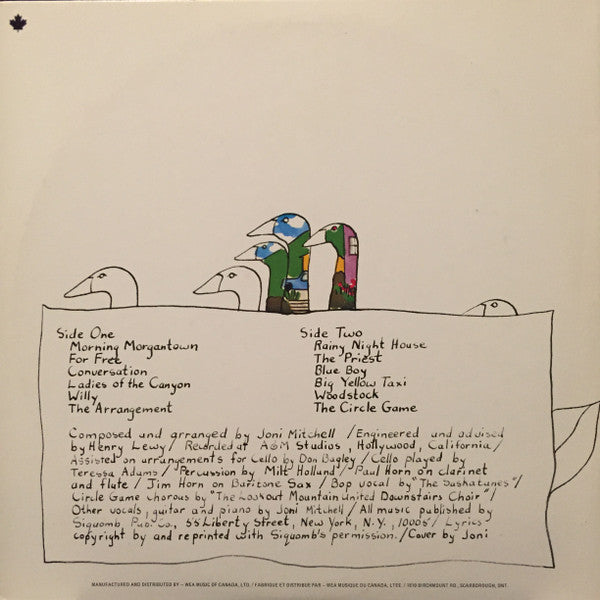 Side One
Morning Morgantown
For Free
Conversation
Ladies of the Canyon
Willy
The Arrangement
Side Two
Rainy Night House
The Priest
Blue Boy
Big Yellow Taxi
Woodstock
The Circle Game
Composed and arranged by Joni Mitchell / Engineered and advised
by Henry Lewy / Recorded at A&M Studios, Hollywood, California /
Assisted on arrangements for Cello by Don Bagley / Cello played by
Teressa Adams / Percussion by Milt Holland / Paul Horn on clarinet
and flute / Jim Horn on Baritone Sax / Bop vocal by "The Saskatunes" /
Circle Game chorous by "The Lookout Mountain United Downstairs Choir" /
Other vocals, guitar and piano by Joni Mitchell / All music published by
Siquomb, Pub. Co., 55 Liberty Street, New York, N.Y., 10005 / Lyrics
copyright by and reprinted with Siquomb's permission. / Cover by Joni
MANUFACTURED AND DISTRIBUTED BY - WEA MUSIC OF CANADA, LTD. / FABRIQUE ET DISTRIBUE PAR - WEA MUSIQUE DU CANADA, LTEE. / 1810 BIRCHMOUNT RD., SCARBOROUGH, ONT.